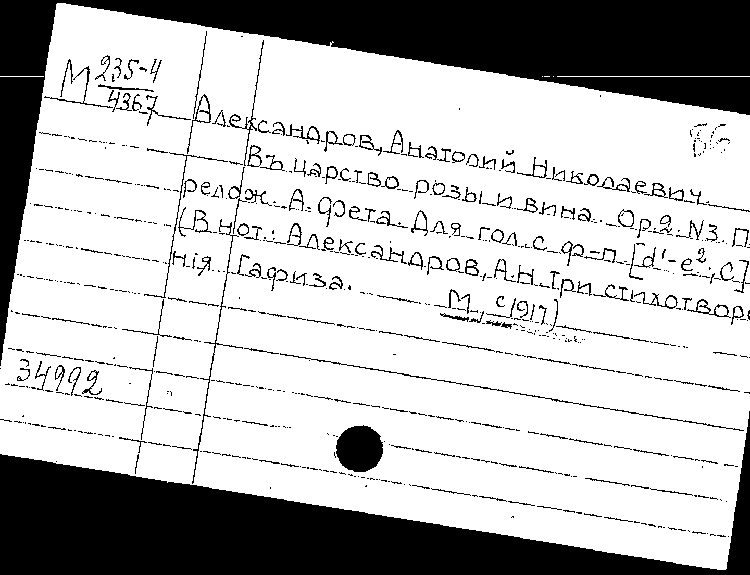 М 235-4
4367
86
Александров, Анатолий Николаевич.
Въ царство розы и вина. Ор.2. N3. П
релож. А. Фета. Для гол. с ф-п. [d¹-e²; C]
(В нот.: Александров, А.Н. Три стихотворе
нiя Гафиза.
М., с1917)
34992